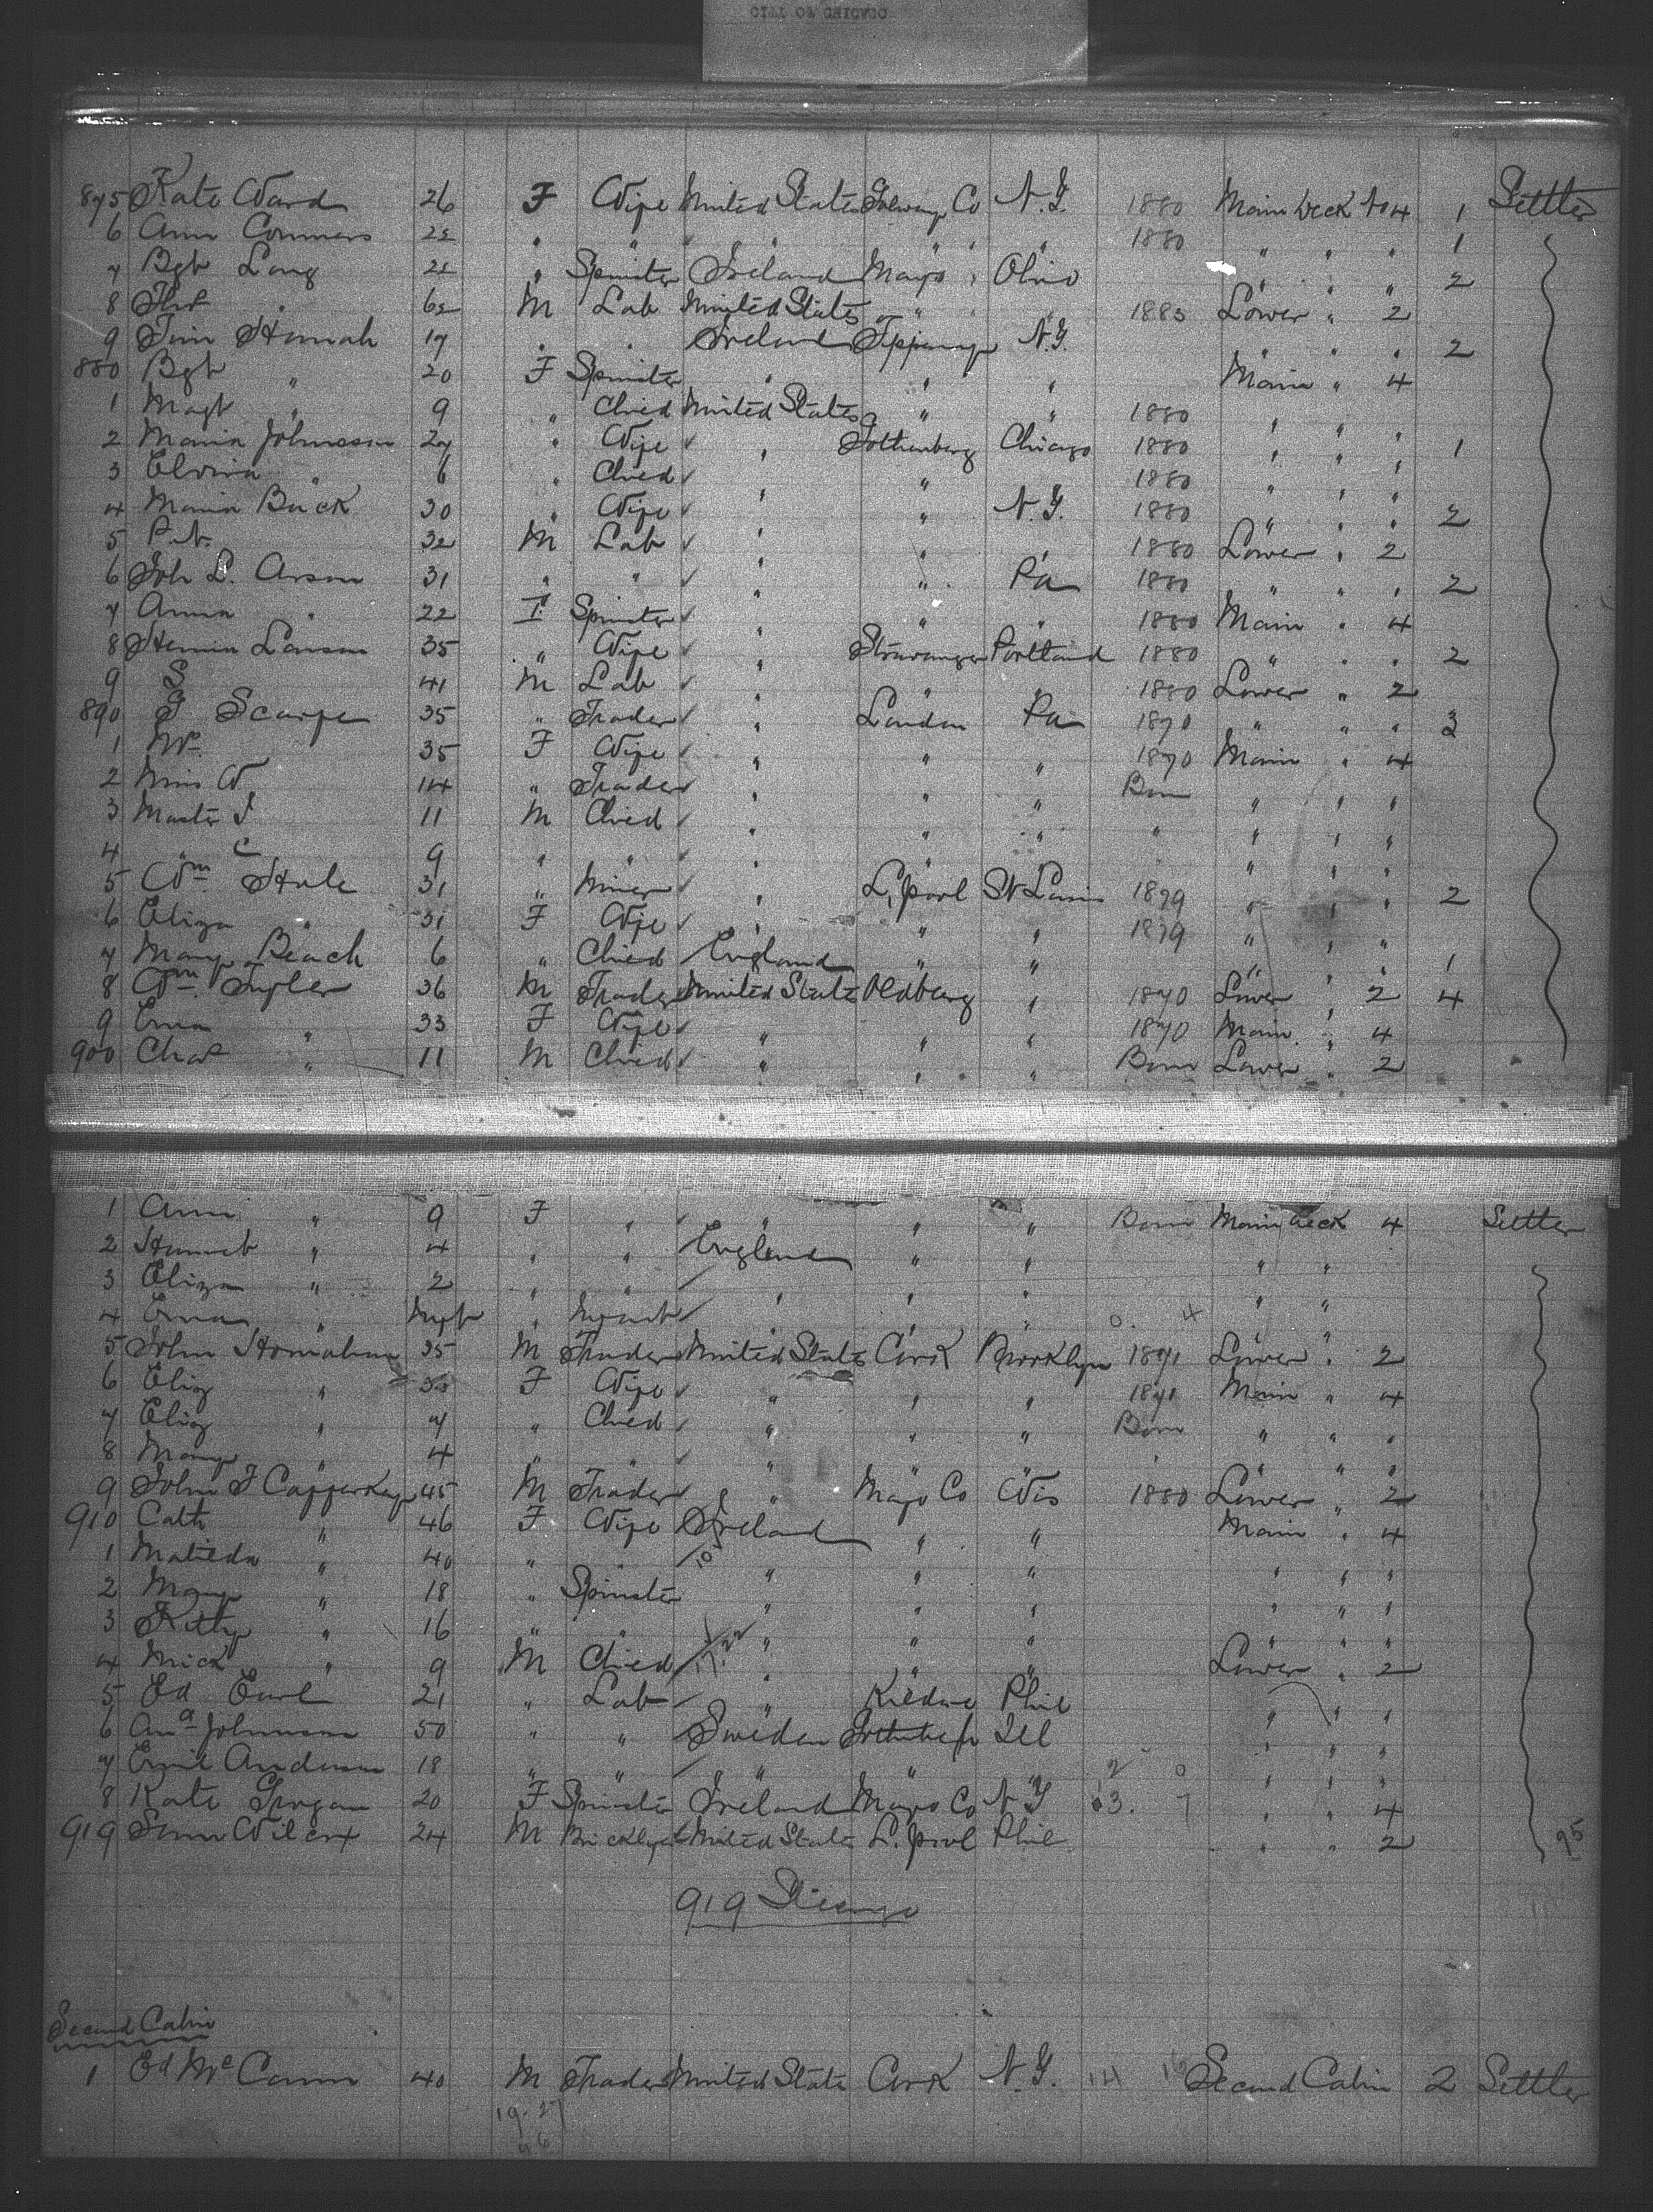 CITY OF CHICAGO
875 Kate Ward 26 F Wife United States Galway Co N.Y. 1880 Main Deck No 4 1 Settler
6 Ann Commers 22 " " " " " " 1880 " " " 1
7 Bgt Lang 22 " Spinster Ireland Mayo " Ohio " " " 2
8 Tho " 62 M Lab United States " " " 1883 Lower " 2
9 Tim Hannah 17 " " Ireland Tipperary N.Y. " " " 2
880 Bgt " 20 F Spinster " " " Main " 4
1 Magt " 9 " Child United States " " 1880 " " "
2 Maria Johnsson 27 " Wife " Gothenberg Chicago 1880 " " " 1
3 Elvira " 6 " Child " " " 1880 " " "
4 Maria Back 30 " Wife " " N.Y. 1880 " " " 2
5 P.N. 32 M Lab " " " 1880 Lower " 2
6 Joh L. Arson 31 " " " " Pa 1880 " " " 2
7 Anna " 22 F Spinster " " " 1880 Main " 4
8 Lanson 35 " Wife " Portland 1880 " " " 2
9 S 41 M Lab " " " 1880 Lower " 2
890 Scarpe 35 " Trader " London Pa 1870 " " " 3
1 Mrs 35 F Wife " " " 1870 Main " 4
2 Miss W. 14 " Trader " " " Born " " "
3 Master 11 M Child " " " " " " "
4 " C 9 " " " " " " " "
5 Wm Hule 31 " Miner " L'pool St Louis 1879 " " " 2
6 Eliza " 31 F Wife " " " 1879 " " "
7 Mary Beach 6 " Child England " " " " " 1
8 Wm 36 M Trader United State Oldberg " 1870 Lower " 2 4
9 Ema " 33 F Wife " " " 1870 Main " 4
900 Chas " 11 M Child " " " Born Lower " 2
1 Ann " 9 F " " " " Born Main Deck 4 Settler
2 Hannah " 4 " " England " " " "
3 Eliza " 2 " " " " " " "
4 Ema " Inft " Infant " " "
5 John 35 M Trader United State Cork Brooklyn 1871 Lower " 2
6 Eliz " 33 F Wife " " " 1871 Main " 4
7 Eliz " 7 " Child " " " Born " " "
8 Mary " 4 " " " " " " " " "
9 John J Cafferkey 45 M Trader " Mayo Co Wis 1880 Lower " 2
910 Cath " 46 F Wife Ireland " " Main " 4
1 Matilda " 40 " " " " " " " "
2 Mary " 18 " Spinster " " " " " "
3 Kitty " 16 " " " " " " " "
4 Mick " 9 M Child " " " Lower " 2
5 Ed Earl 21 " Lab " Kildare Phil " " "
6 Johnson 50 " " Sweden Ill " " "
7 Emil Anderson 18 " " " " " " " "
8 Kate 20 F Spinster Ireland Mayo Co N.Y " " 4
919 Wilcox 24 M United State L'pool Phil " " 2
919
Second Cabin
1 Ed McCann 40 M Trader United State Cork N.Y. Second Cabin 2 Settler